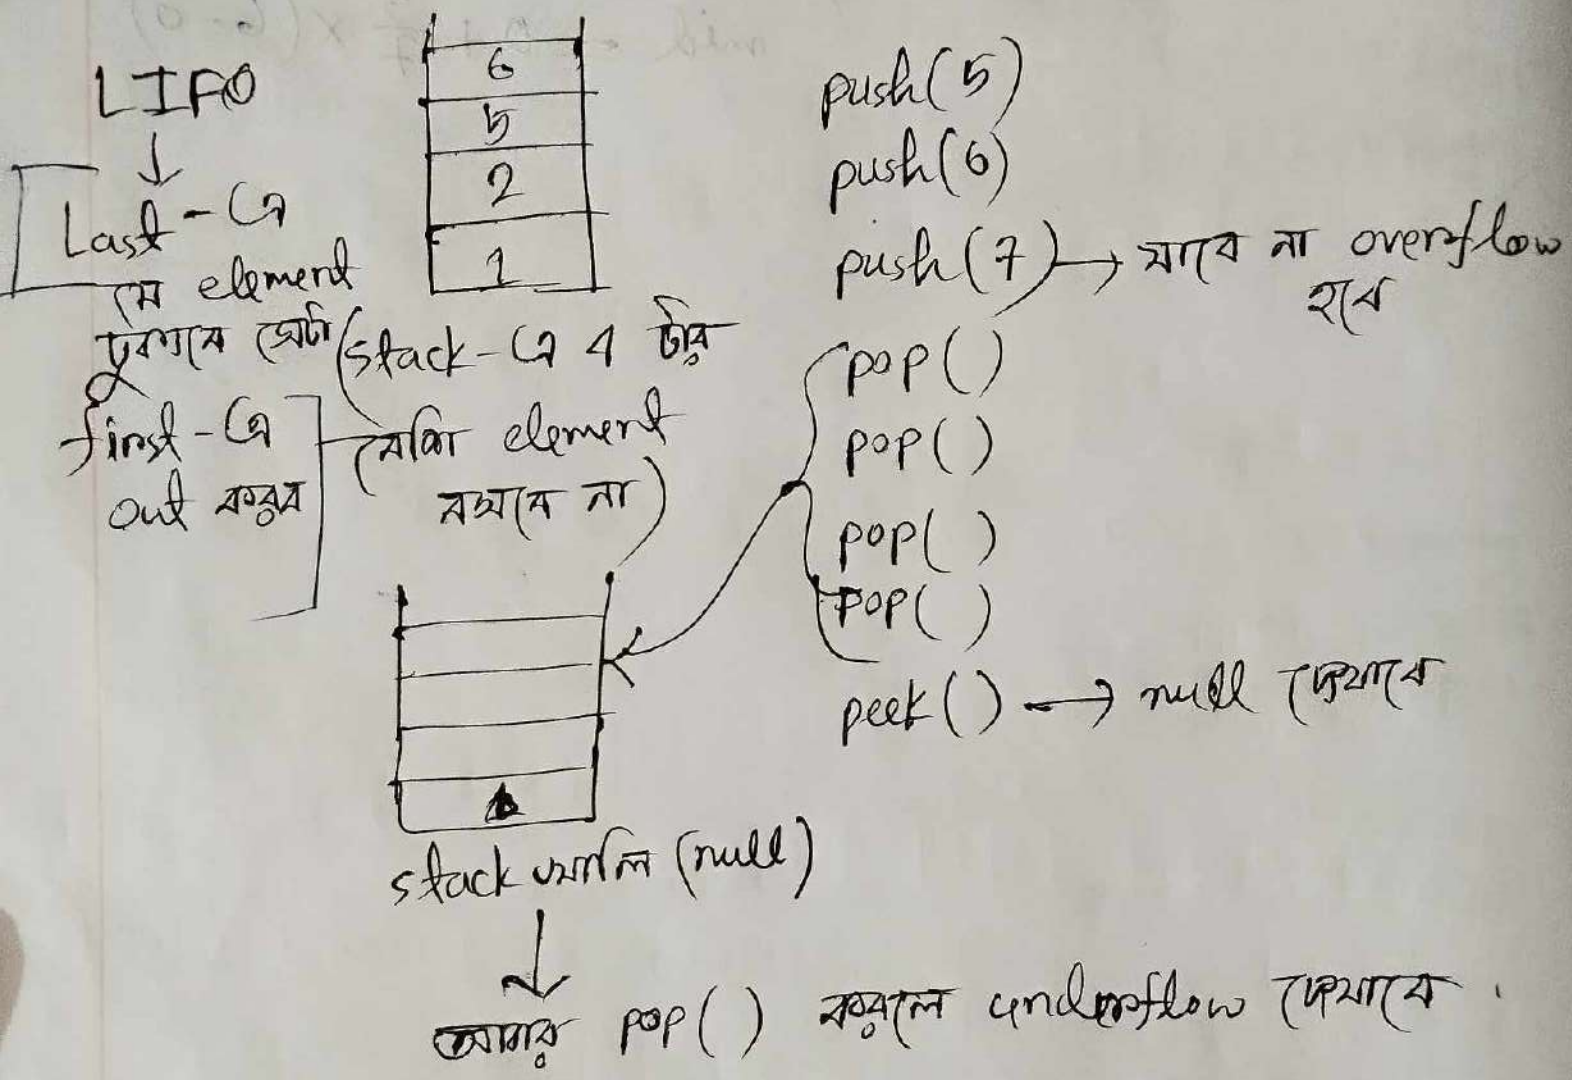 LIFO
↓
Last-এ
যে element
ঢুকাবে সেটা
first-এ
out করব
6
5
2
1
(stack-এ 4 টার
বেশি element
বসবে না)
push(5)
push(6)
push(7) → যাবে না overflow
হবে
pop()
pop()
pop()
pop()
peek() → null দেখাবে
stack খালি (null)
↓
আবার pop() করলে underflow দেখাবে